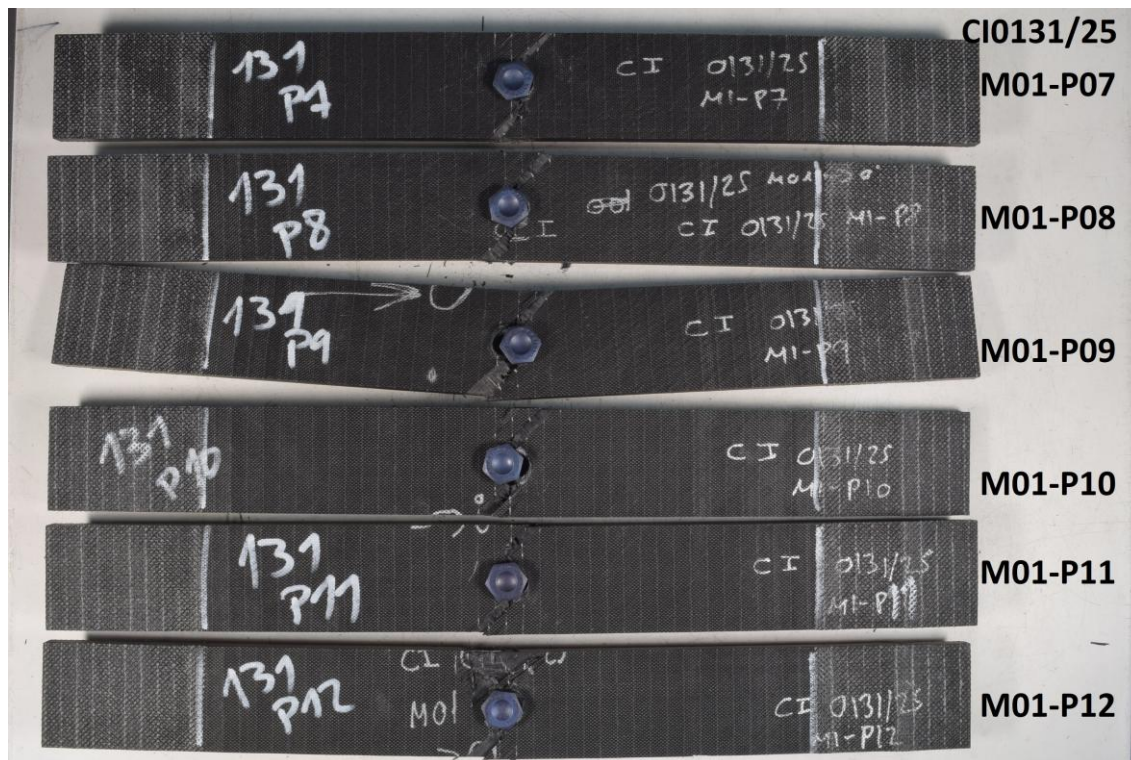 CI0131/25
131
P7
CI 0131/25
M1-P7
M01-P07
131
P8
0131/25 M01-
CI 0131/25 M1-P8
CI
M01-P08
131
P9
CI 0131
M1-P9
M01-P09
131
P10
CI 0131/25
M1-P10
M01-P10
131
P11
CI 0131/25
M1-P11
M01-P11
CI
131
P12
M01
CI 0131/25
M1-P12
M01-P12